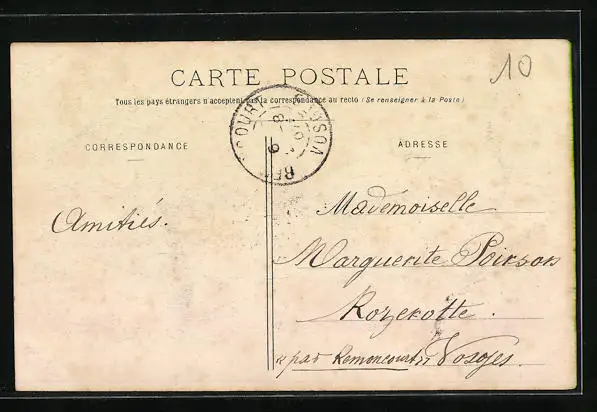 10
CARTE POSTALE
Tous les pays étrangers n'acceptent pas la correspondance au recto (Se renseigner à la Poste)
CORRESPONDANCE
ADRESSE
Amitiés.
Mademoiselle
Marguerite Poirson
Rozerotte.
par Remoncourt Vosges.